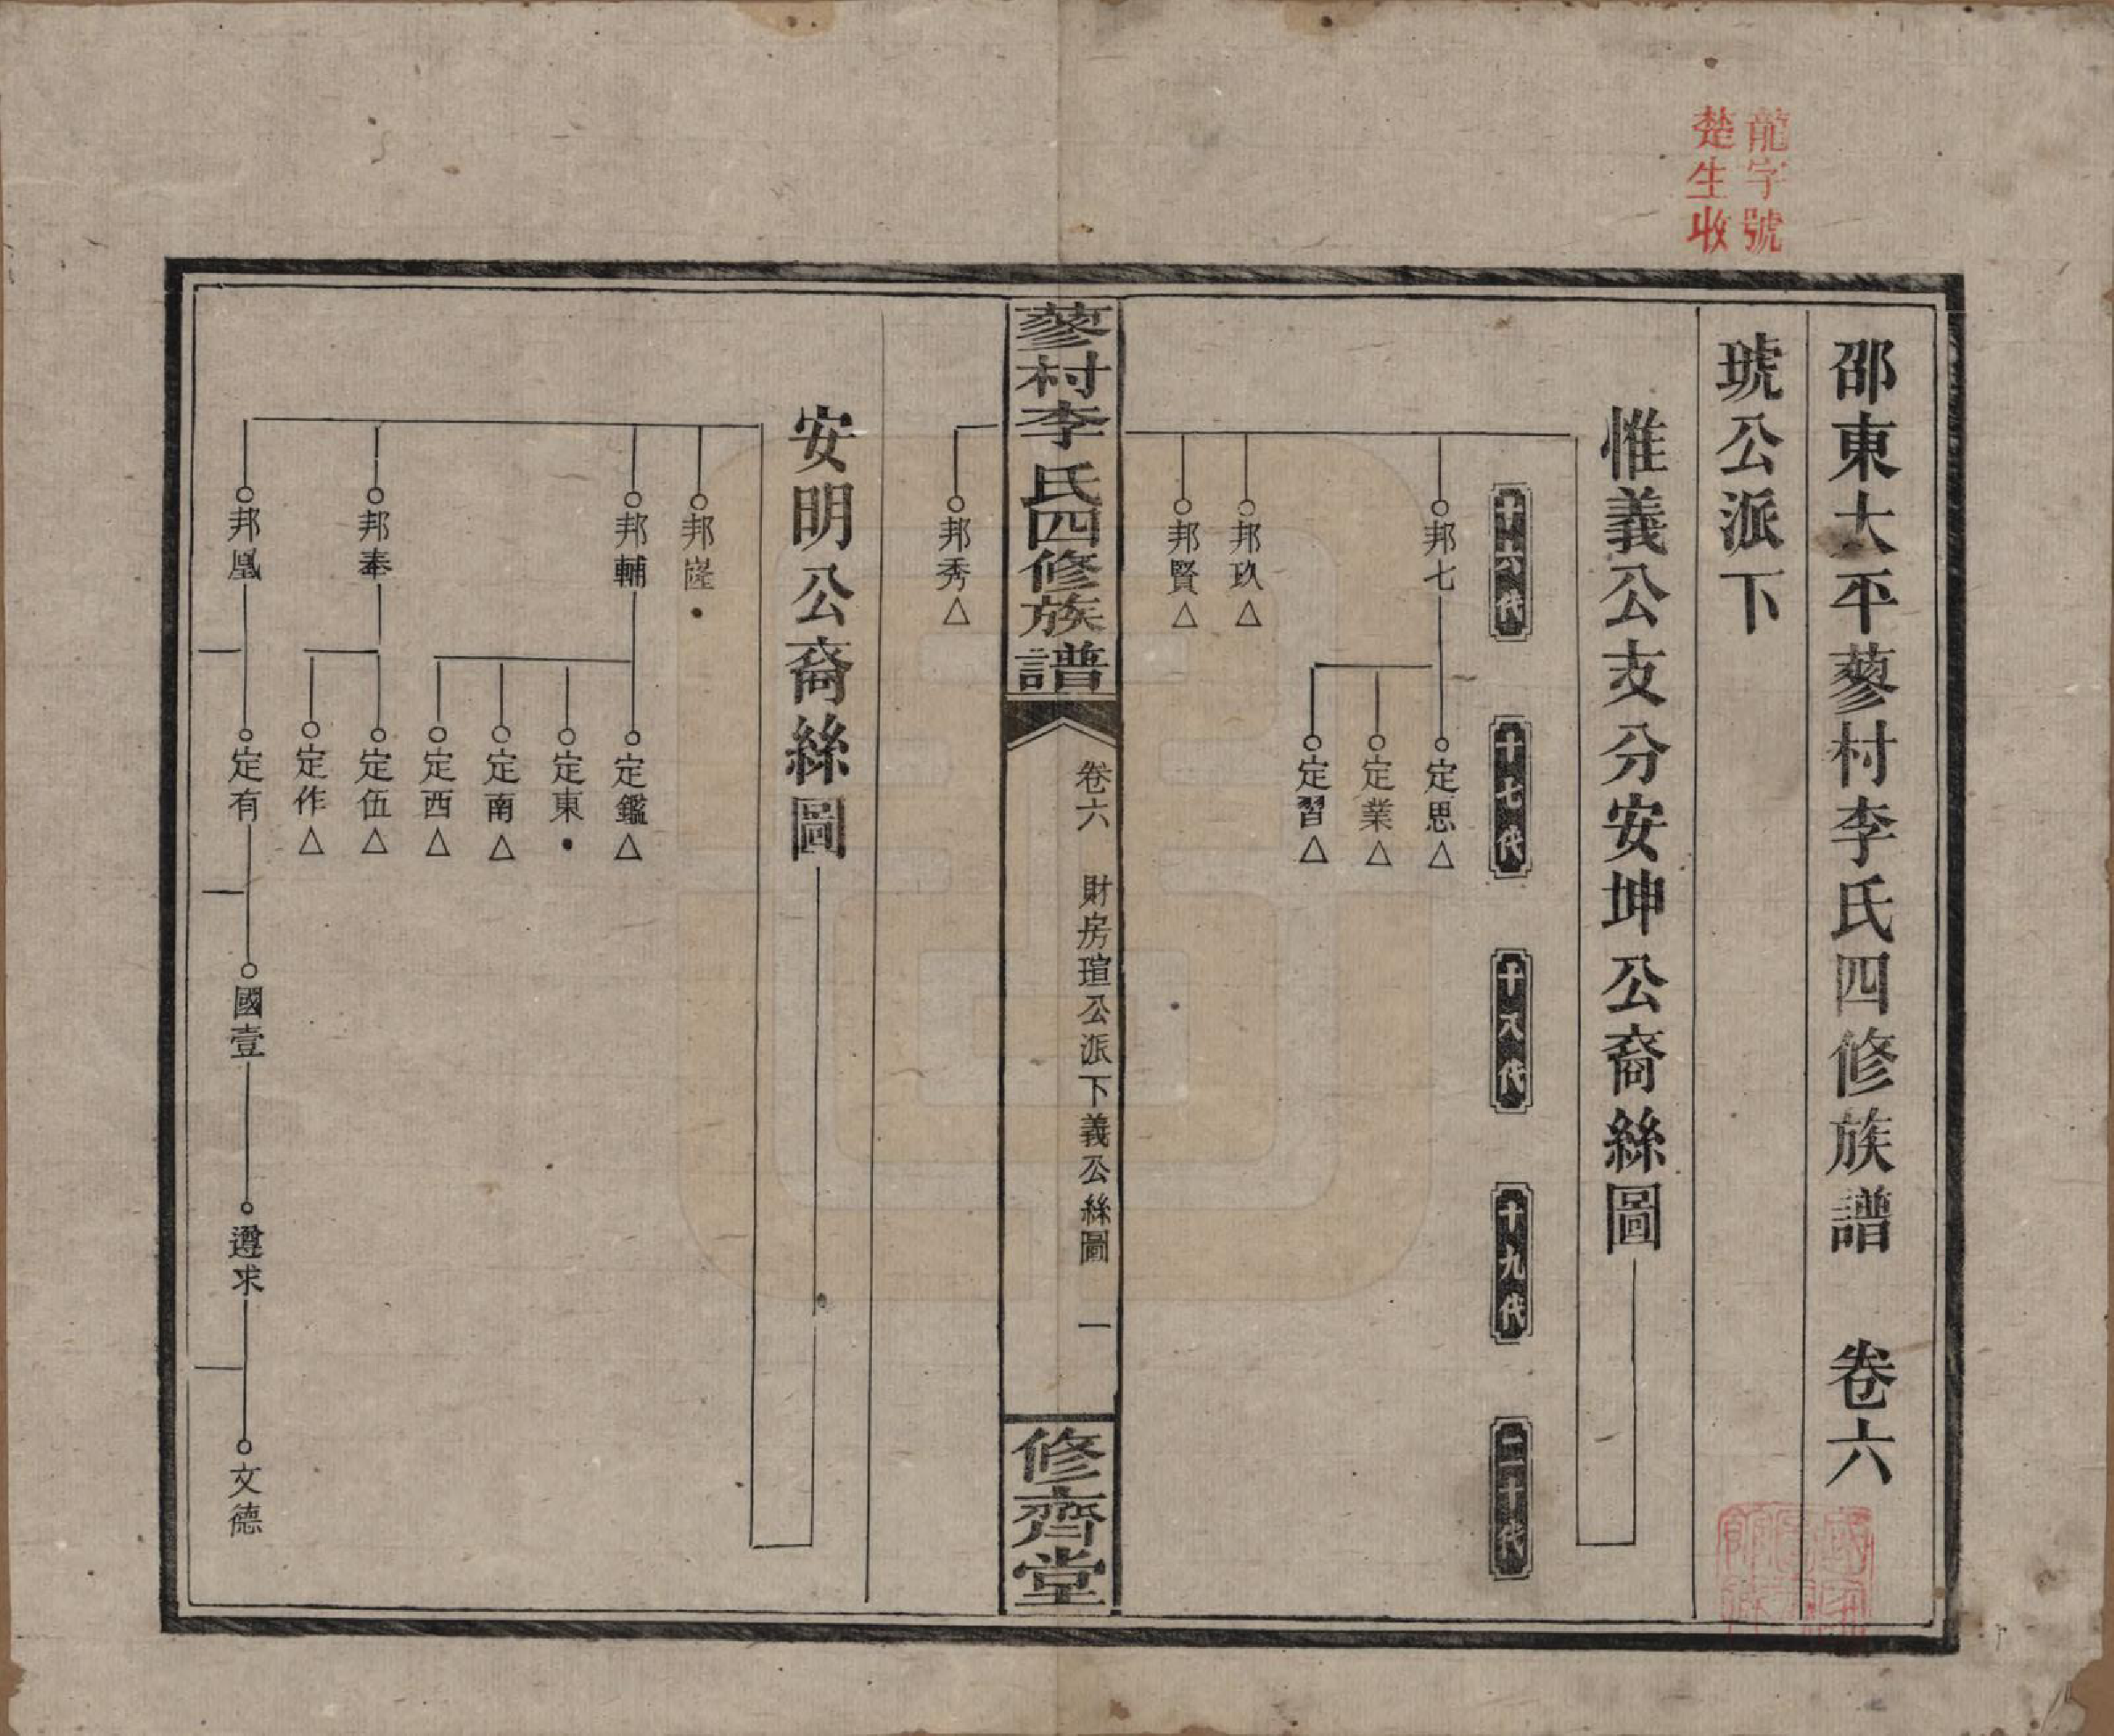 龍字號
楚生收
邵東太平蓼村李氏四修族譜　卷六
琥公派下
惟義公支分安坤公裔絲圖
十六代
十七代
十八代
十九代
二十代
邦七
定思△
定業△
定習△
邦玖△
邦賢△
蓼村李氏四修族譜
卷六　財房瑄公派下義公絲圖　一
修齊堂
邦秀△
安明公裔絲圖
邦隆•
邦輔
定鑑△
定東•
定南△
定西△
邦奉
定伍△
定作△
邦凰
定有
國壹
遵求
文德